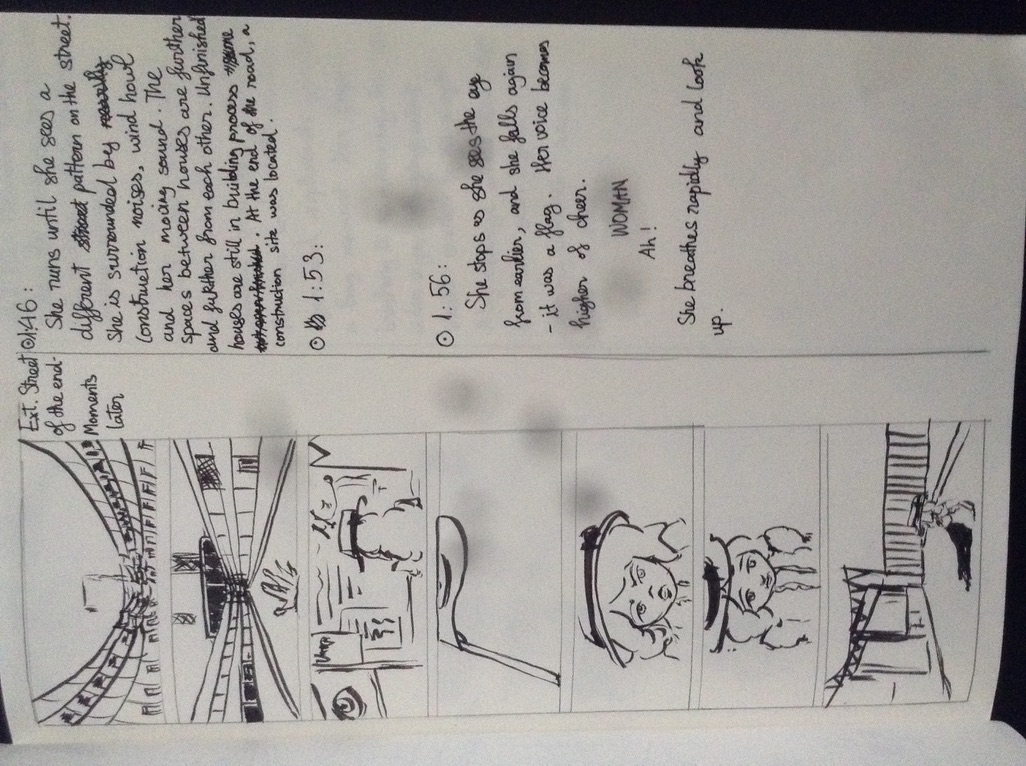 Ext. Street
of the end-
Moments
Later
⊙1:46:
She runs until she sees a
different street pattern on the street.
She is surrounded by
construction noises, wind howl
and her moving sound. The
spaces between houses are further
and further from each other. Unfinished
houses are still in building process
. At the end of the road, a
construction site was located.
⊙ 1:53:
⊙ 1:56:
She stops as she sees the eye
from earlier, and she falls again
- it was a flag. Her voice becomes
higher of cheer.
WOMAN
Ah!
She breathes rapidly and look
up.